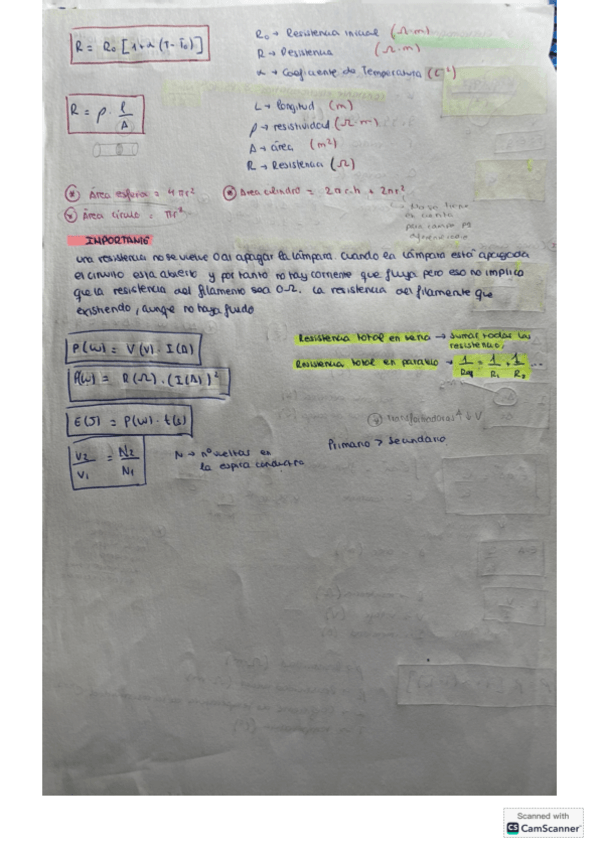 R = R₀ [1 + α (T - T₀)]
R₀ → Resistencia inicial (Ω·m)
R → Resistencia (Ω·m)
α → Coeficiente de Temperatura (C⁻¹)
R = ρ · l/A
L → longitud (m)
ρ → resistividad (Ω·m)
A → área (m²)
R → Resistencia (Ω)
* Área esfera = 4πr²
* Área cilindro = 2πr·h + 2πr²
* Área círculo = πr²
IMPORTANTE
Una resistencia no se vuelve 0 al apagar la lámpara. Cuando la lámpara está apagada
el circuito está abierto y por tanto no hay corriente que fluya pero eso no implica
que la resistencia del filamento sea 0Ω. La resistencia del filamento sigue
existiendo, aunque no haya fluido
P(W) = V(V) · I(A)
P(W) = R(Ω) · (I(A))²
E(J) = P(W) · t(s)
V₂/V₁ = N₂/N₁
N → nº vueltas en
la espira conductora
Resistencia total en serie → sumar todas las
resistencias.
Resistencia total en paralelo → 1/Req = 1/R₁ + 1/R₂ ...
Transformadores ↓ V
Primario > Secundario
Scanned with
CS CamScanner